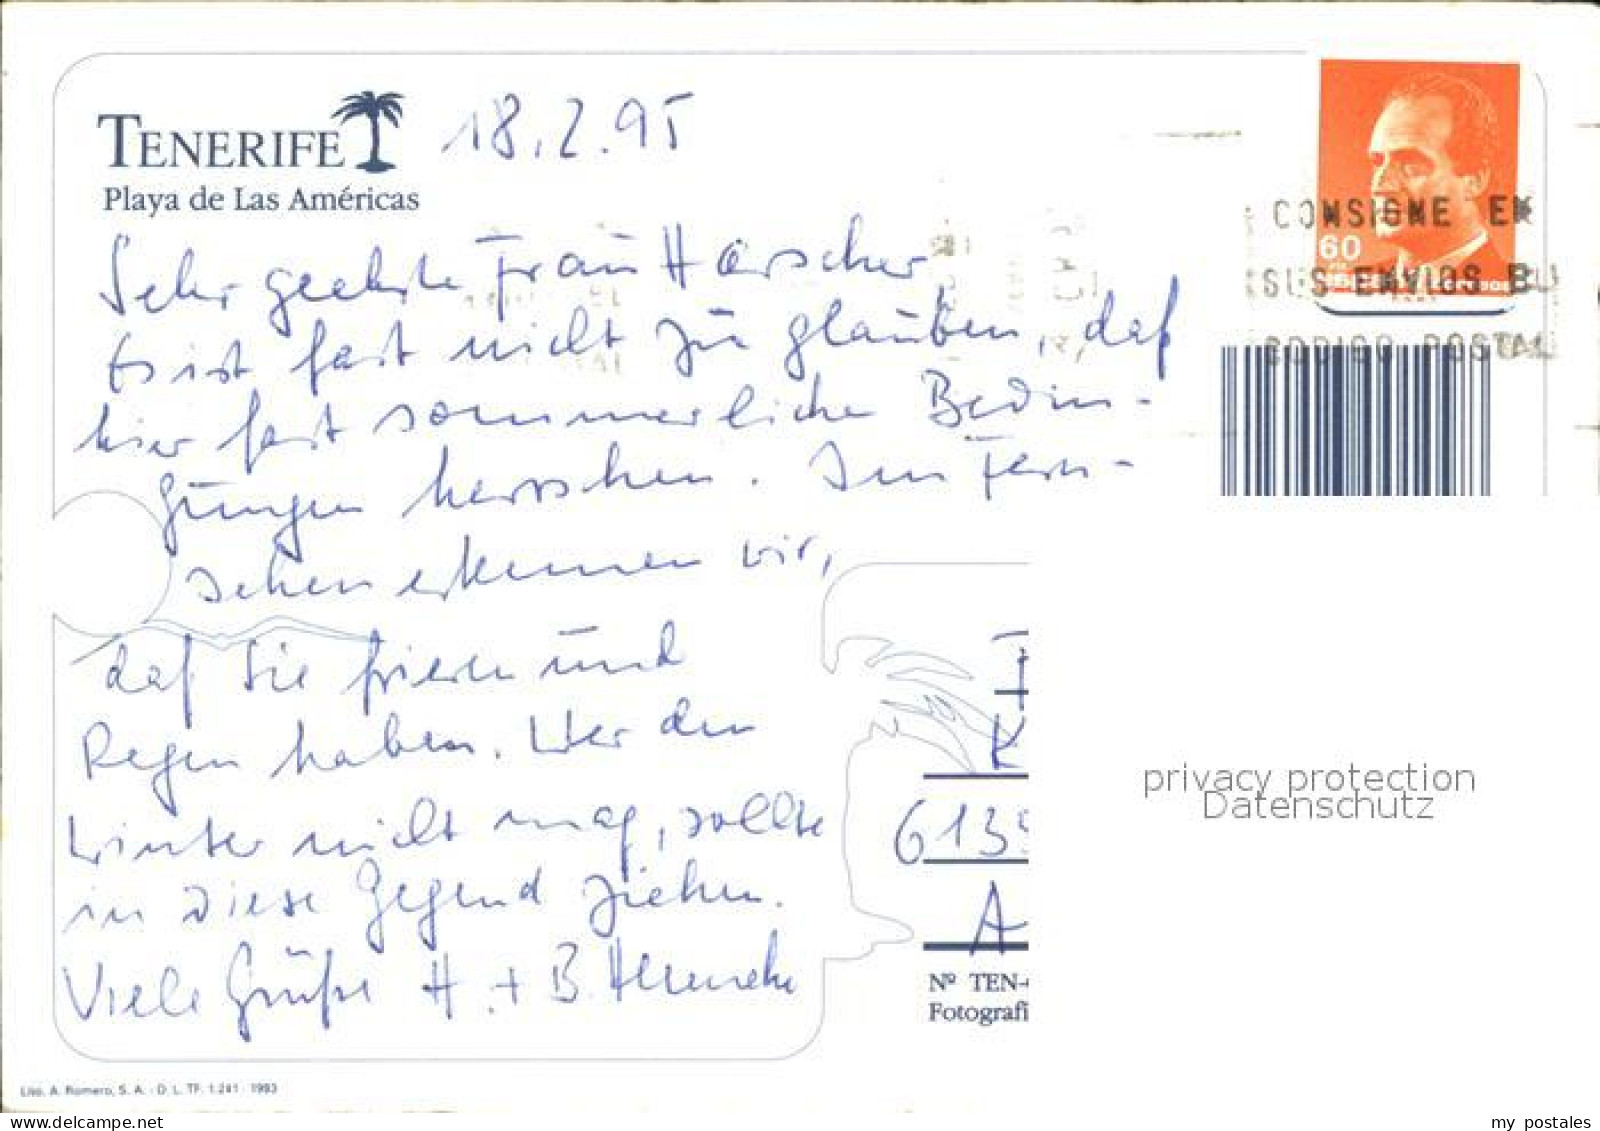 TENERIFE
18.2.95
Playa de Las Américas
Sehr geehrte Frau Harscher
Es ist fast nicht zu glauben, daß
hier fast sommerliche Bedin-
gungen herrschen. Im Fern-
sehen erkennen wir,
daß Sie frieren und
Regen haben. Wer den
Winter nicht mag, sollte
in diese Gegend ziehen.
Viele Grüße H. + B.
60
CONSIGNE EN
SUS ENVIOS
CODIGO POSTAL
K
613
A
Nº TEN-
Fotografi
privacy protection
Datenschutz
Lito. A. Romero, S. A. - D. L. TF. 1.241 - 1993
www.delcampe.net
my postales